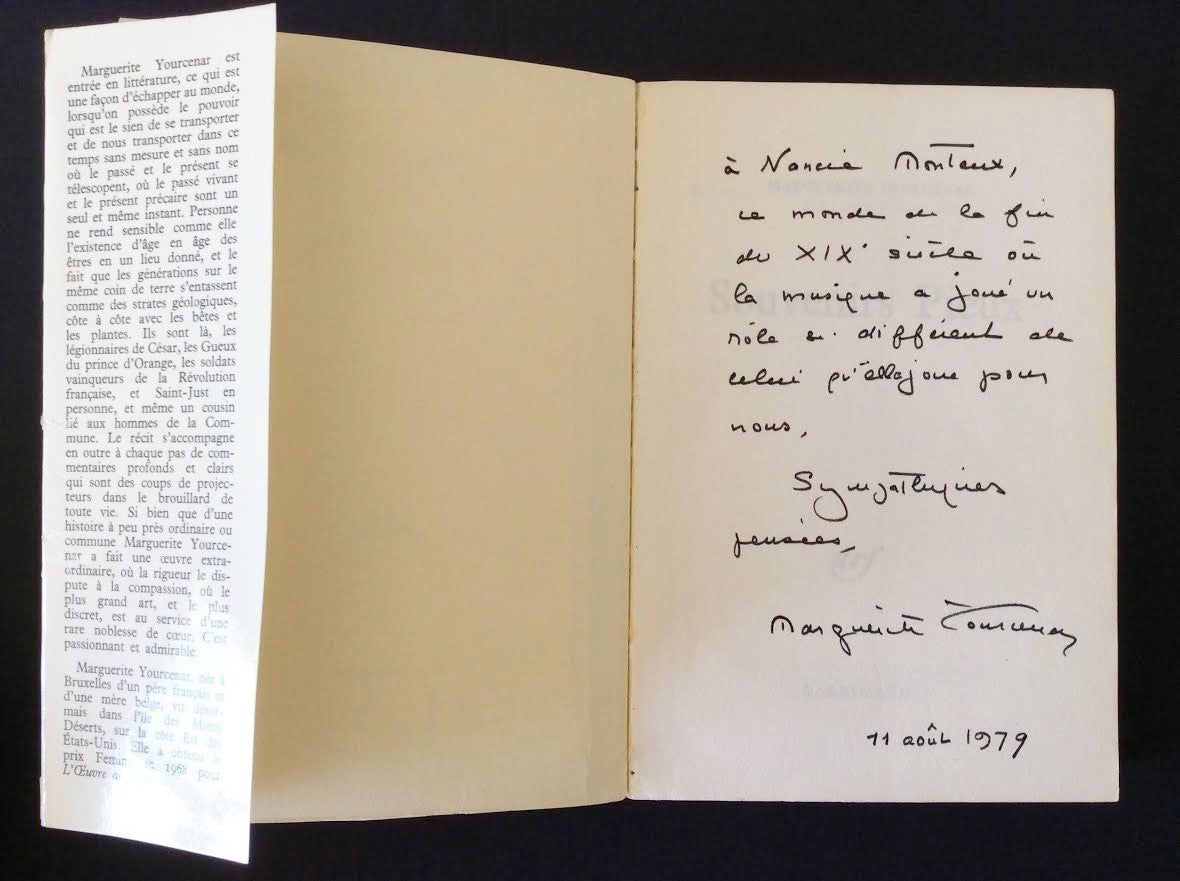 Marguerite Yourcenar est
entrée en littérature, ce qui est
une façon d'échapper au monde,
lorsqu'on possède le pouvoir
qui est le sien de se transporter
et de nous transporter dans ce
temps sans mesure et sans nom
où le passé et le présent se
télescopent, où le passé vivant
et le présent précaire sont un
seul et même instant. Personne
ne rend sensible comme elle
l'existence d'âge en âge des
êtres en un lieu donné, et le
fait que les générations sur le
même coin de terre s'entassent
comme des strates géologiques,
côte à côte avec les bêtes et
les plantes. Ils sont là, les
légionnaires de César, les Gueux
du prince d'Orange, les soldats
vainqueurs de la Révolution
française, et Saint-Just en
personne, et même un cousin
lié aux hommes de la Com-
mune. Le récit s'accompagne
en outre à chaque pas de com-
mentaires profonds et clairs
qui sont des coups de projec-
teurs dans le brouillard de
toute vie. Si bien que d'une
histoire à peu près ordinaire ou
commune Marguerite Yource-
nar a fait une œuvre extra-
ordinaire, où la rigueur le dis-
pute à la compassion, où le
plus grand art, et le plus
discret, est au service d'une
rare noblesse de cœur. C'est
passionnant et admirable.
Marguerite Yourcenar, née à
Bruxelles d'un père français et
d'une mère belge, vit désor-
mais dans l'île des Monts
Déserts, sur la côte Est des
États-Unis. Elle a obtenu le
prix Femin en 1968 pour
L'Œuvre a
à Nancie Monteux,
ce monde de la fin
du XIXe siècle où
la musique a joué un
rôle si différent de
celui qu'elle joue pour
nous,
Sympathiques
pensées,
Marguerite Yourcenar
11 août 1979
Souvenirs Pieux